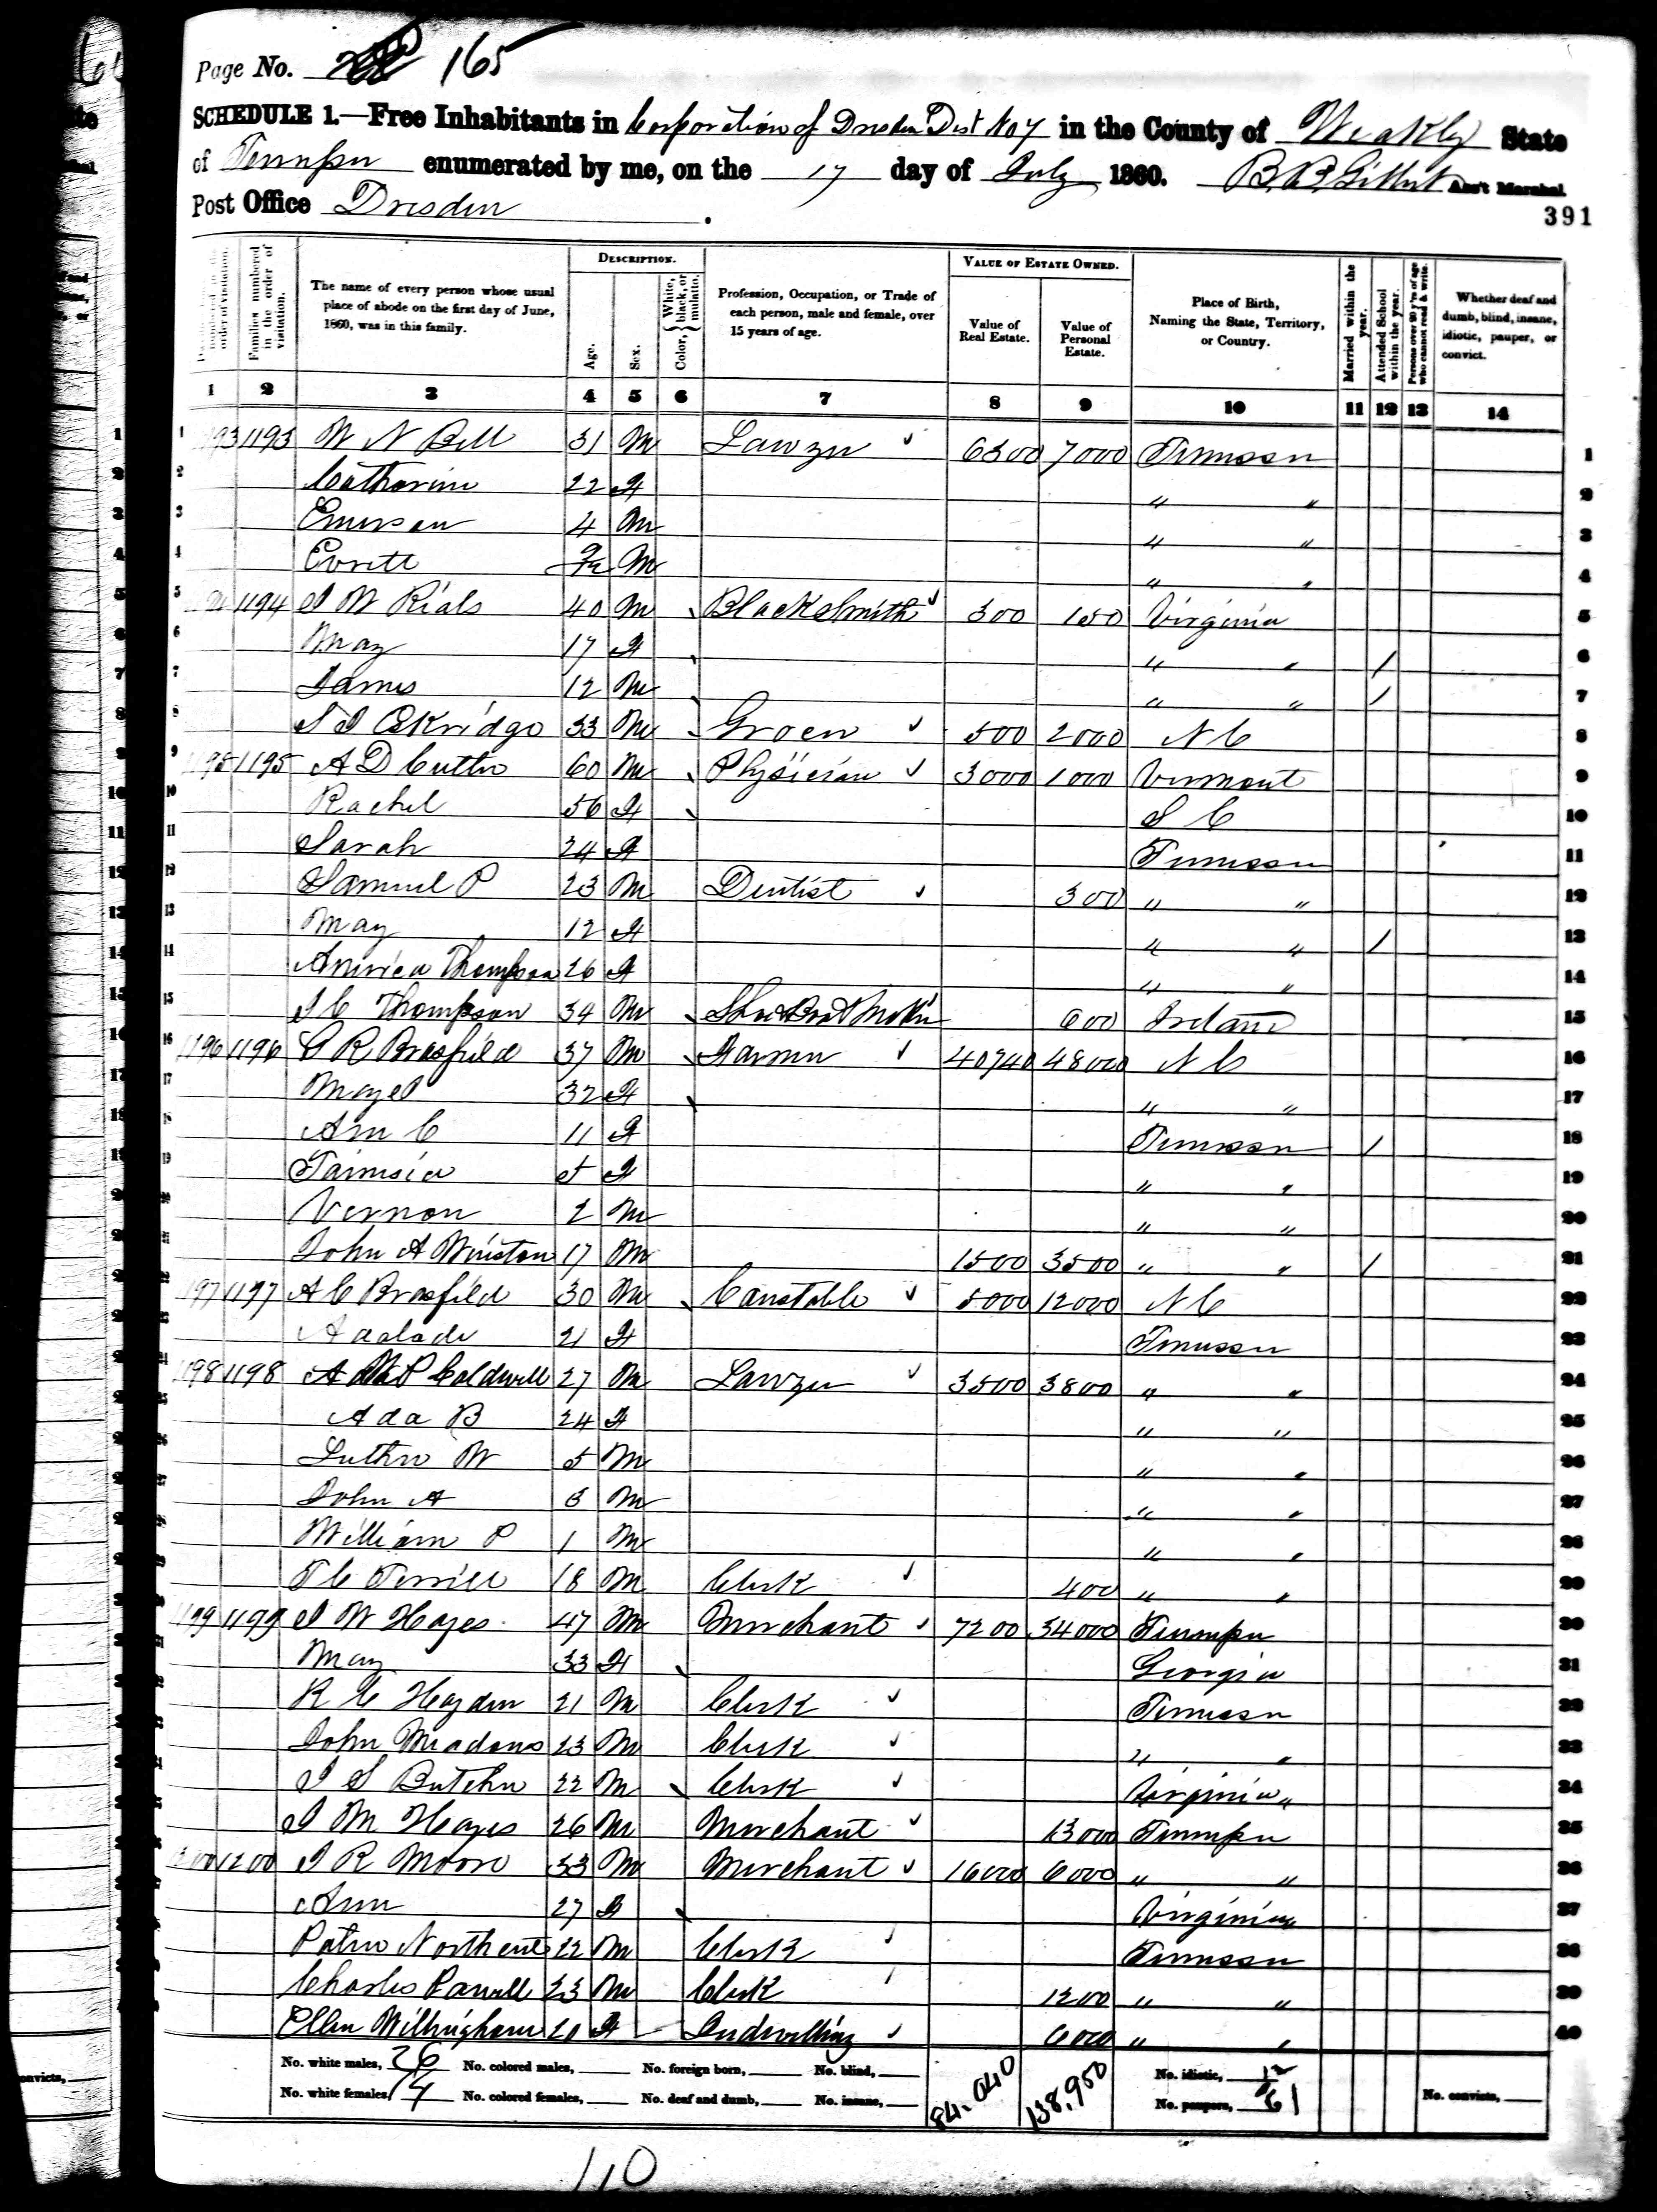 Page No. 165
SCHEDULE 1.—Free Inhabitants in Corporation of Dresden Dist No 7 in the County of Weakly State
of Tennessee enumerated by me, on the 17 day of July 1860. Ass't Marshal.
Post Office Dresden .
391
DESCRIPTION. VALUE OF ESTATE OWNED.
order of visitation. Families numbered in the order of visitation. The name of every person whose usual place of abode on the first day of June, 1860, was in this family. Age. Sex. Color, } White, black, or mulatto. Profession, Occupation, or Trade of each person, male and female, over 15 years of age. Value of Real Estate. Value of Personal Estate. Place of Birth, Naming the State, Territory, or Country. Married within the year. Attended School within the year. Persons over 20 y'rs of age who cannot read & write. Whether deaf and dumb, blind, insane, idiotic, pauper, or convict.
1 2 3 4 5 6 7 8 9 10 11 12 13 14
1 1193 W N Bell 31 M Lawyer 6300 7000 Tennessee 1
2 Catharine 22 F " " 2
3 Emerson 4 M " " 3
4 Evrett M " " 4
5 1194 J W Rials 40 M Blacksmith 300 150 Virginia 5
6 May 17 F " " / 6
7 James 12 M " " / 7
8 S J Eskridge 33 M Grocer 500 2000 N C 8
9 1195 1195 A D Cutler 60 M Physician 3000 1000 Vermont 9
10 Rachel 56 F S C 10
11 Sarah 24 F Tennessee 11
12 Samuel P 23 M Dentist 300 " " 12
13 May 12 F " " / 13
14 America Thompson 26 F " " 14
15 J C Thompson 34 M Shoe & Boot Maker 600 Ireland 15
16 1196 1196 C R Brasfield 37 M Farmer 40740 48000 N C 16
17 32 F " " 17
18 Ann C 11 F Tennessee / 18
19 5 F " " 19
20 Vernon 2 M " " 20
21 John A Winston 17 M 1500 3500 " " / 21
22 1197 1197 A C Brasfield 30 M Constable 5000 12000 N C 22
23 Adalade 21 F Tennessee 23
24 1198 1198 A W P Caldwell 27 M Lawyer 3500 3800 " " 24
25 Ada B 24 F " " 25
26 Luther W 5 M " " 26
27 John A 3 M " " 27
28 William P 1 M " " 28
29 T C Terrill 18 M Clerk 400 " " 29
30 1199 1199 J W Hayes 47 M Merchant 7200 34000 Tennessee 30
31 May 33 F Georgia 31
32 R C Hayden 21 M Clerk Tennessee 32
33 John Meadows 23 M Clerk " " 33
34 J S Butcher 22 M Clerk Virginia 34
35 J M Hayes 26 M Merchant 13000 Tennessee 35
36 1200 J R Moore 33 M Merchant 16000 6000 " " 36
37 Ann 27 F Virginia 37
38 22 M Clerk Tennessee 38
39 Charles 23 M Clerk 1200 " " 39
40 Ellen Willingham 20 F 6000 " " 40
No. white males, 26 No. colored males, No. foreign born, No. blind, 84,040 138,950 No. idiotic, 12
No. white females, 14 No. colored females, No. deaf and dumb, No. insane, No. paupers, 61 No. convicts,
110